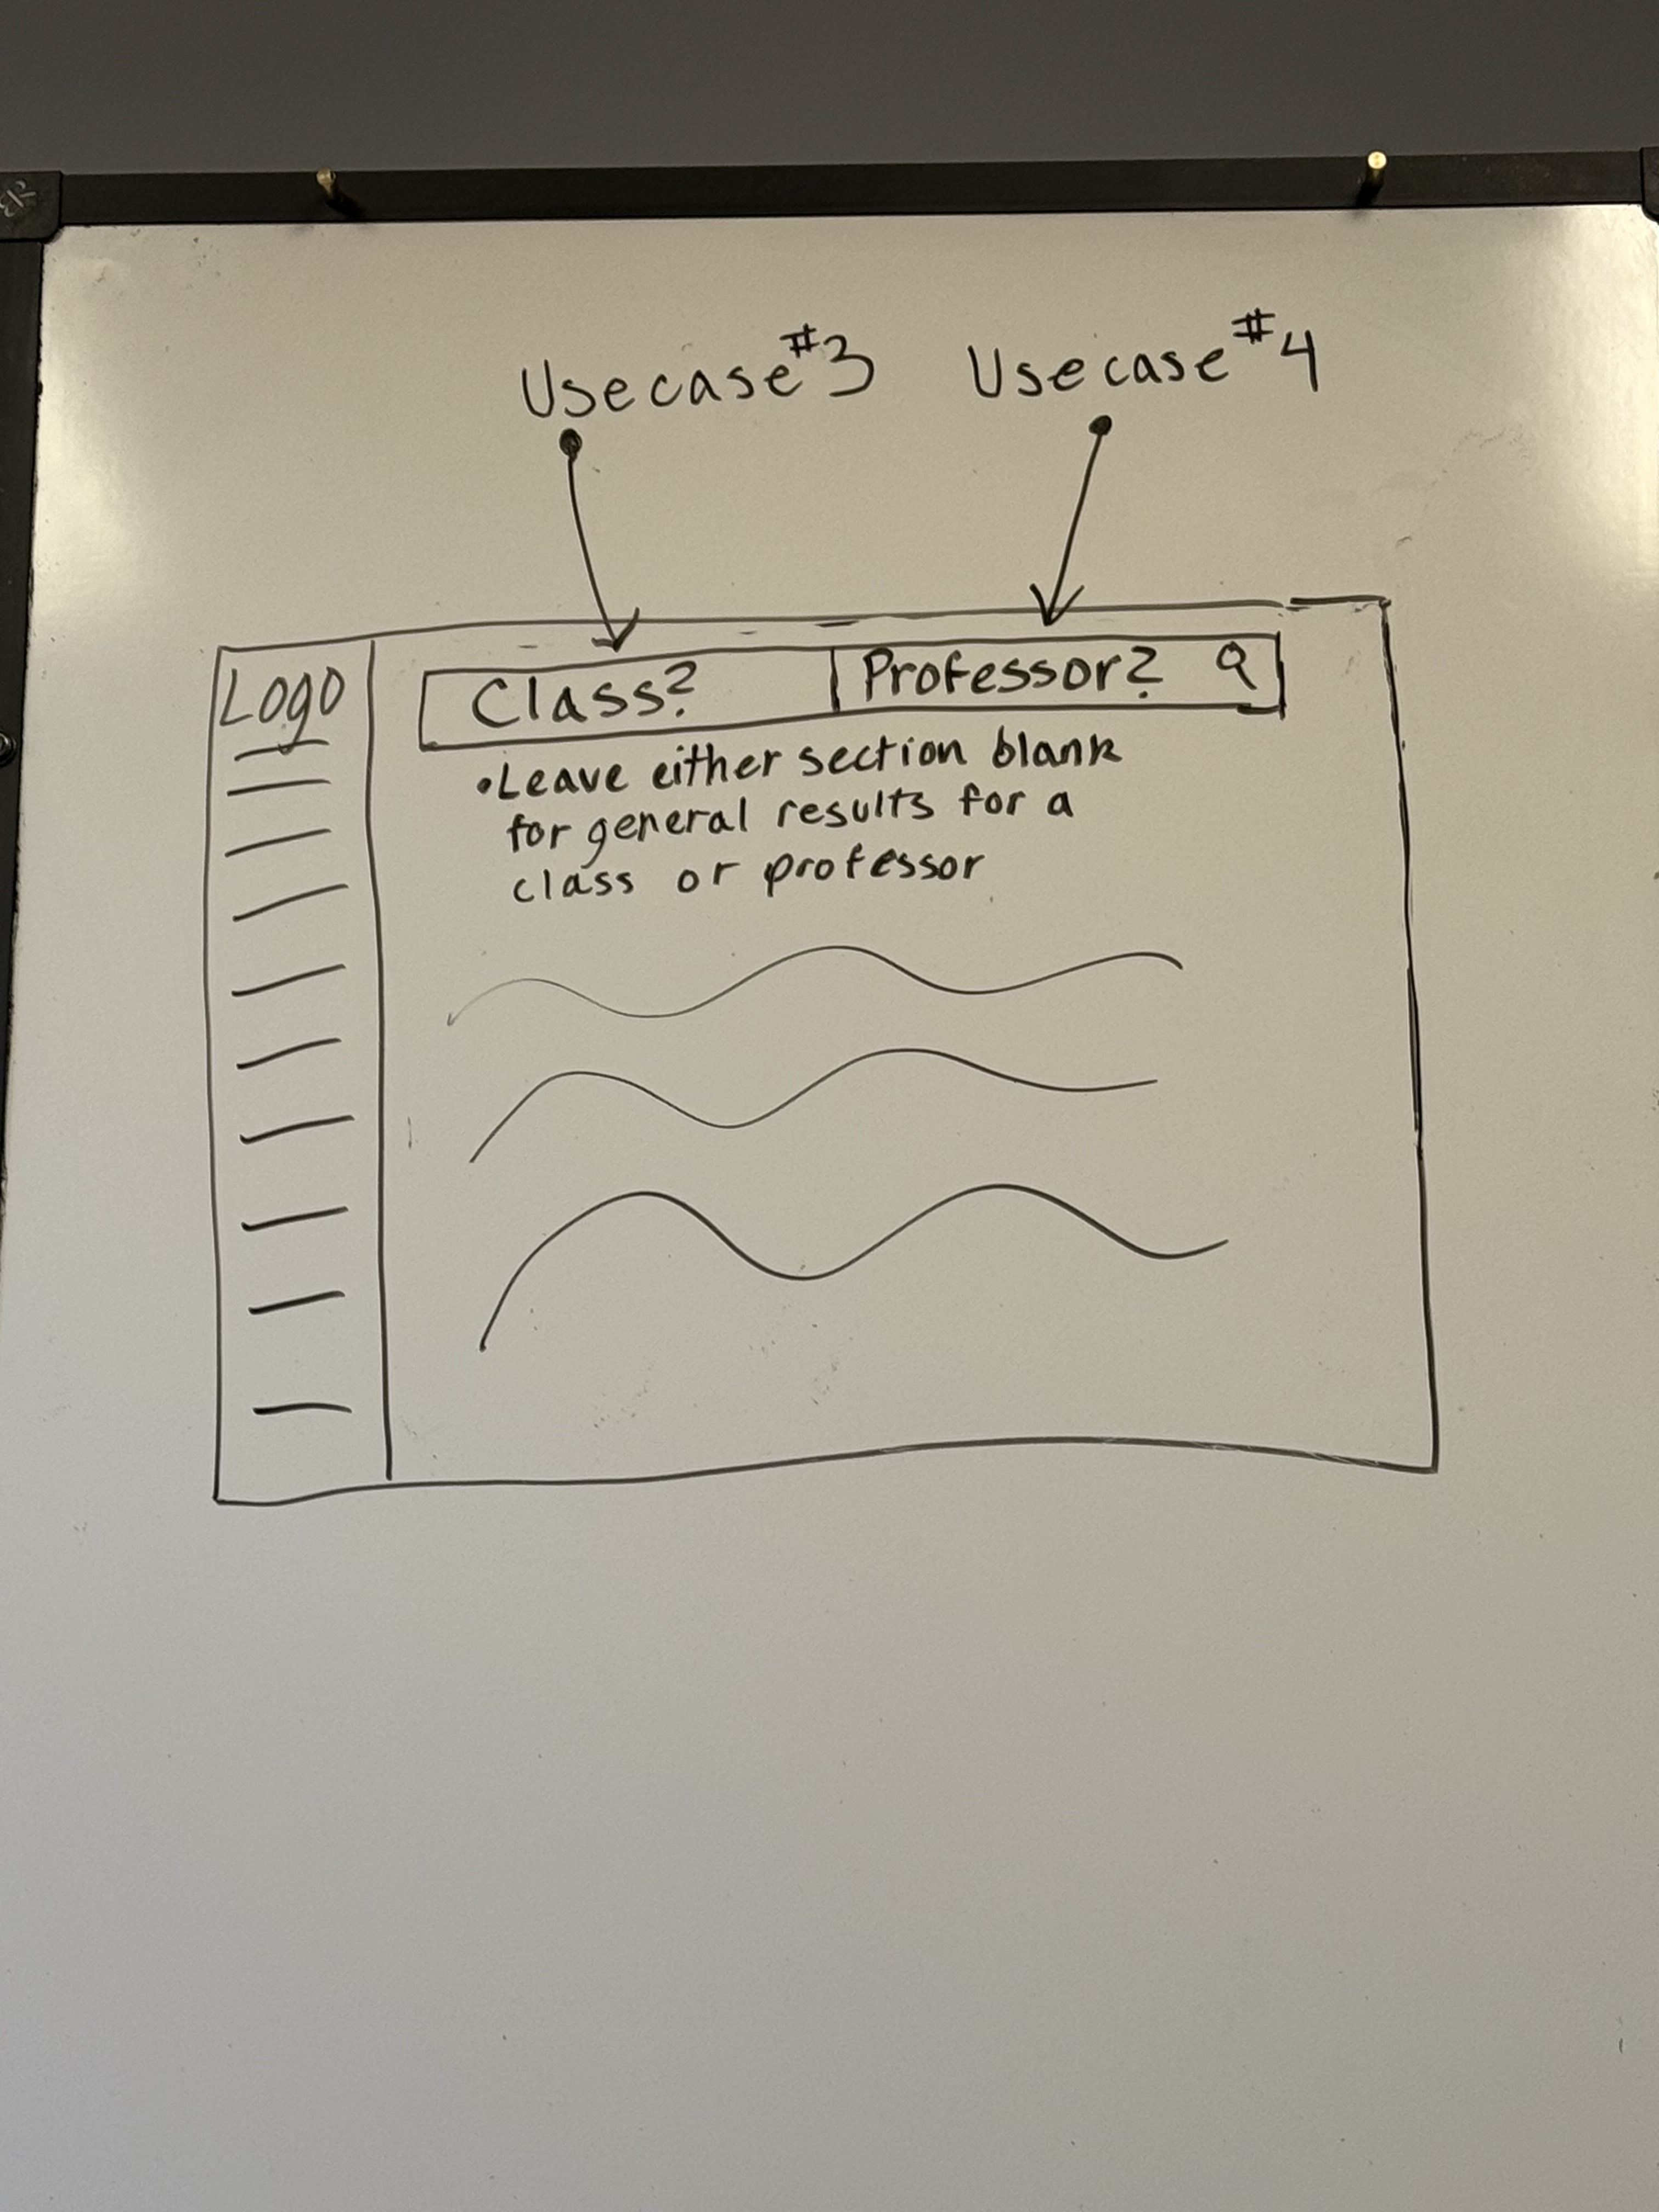 Usecase #3 Usecase #4
Logo
Class? Professor?
•Leave either section blank
for general results for a
class or professor